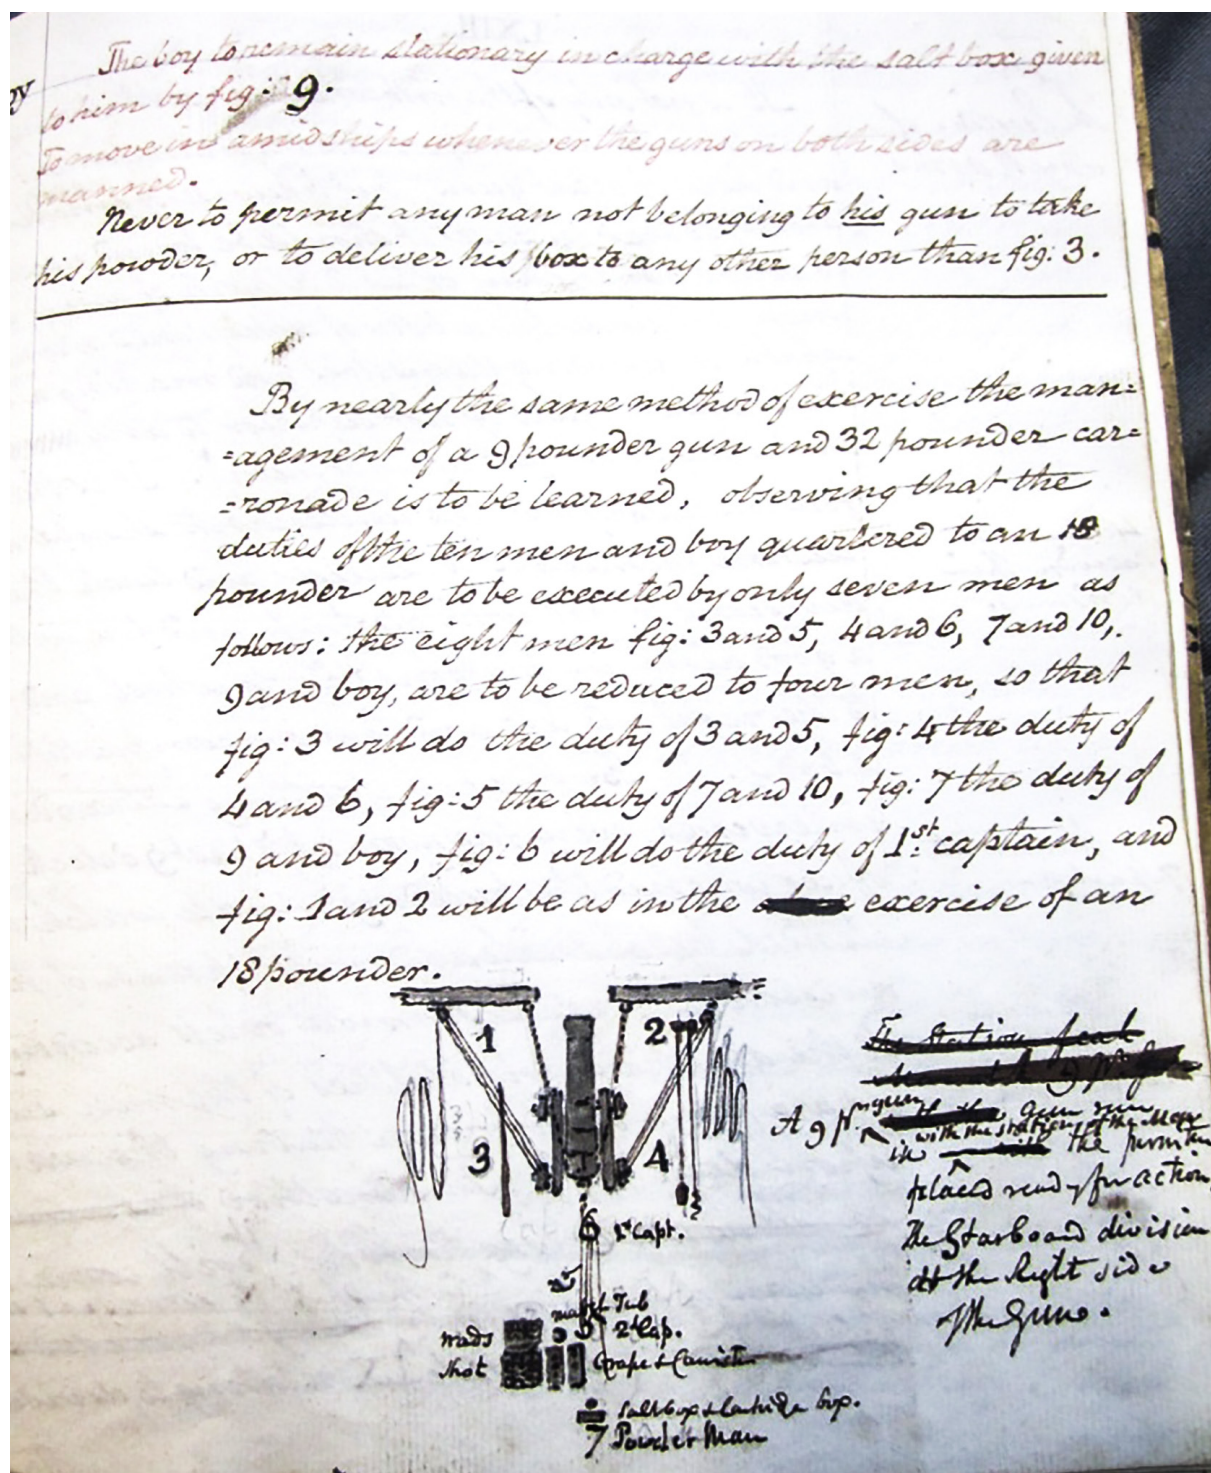 The boy to remain stationary in charge with the salt box given
to him by fig: 9.
To move in amidships whenever the guns on both sides are
manned.
Never to permit any man not belonging to his gun to take
his powder, or to deliver his box to any other person than fig: 3.
By nearly the same method of exercise the man=
=agement of a 9 pounder gun and 32 pounder car=
=ronade is to be learned, observing that the
duties of the ten men and boy quartered to an 18
pounder are to be executed by only seven men as
follows: the eight men fig: 3 and 5, 4 and 6, 7 and 10,
9 and boy, are to be reduced to four men, so that
fig: 3 will do the duty of 3 and 5, fig: 4 the duty of
4 and 6, fig: 5 the duty of 7 and 10, fig: 7 the duty of
9 and boy, fig: 6 will do the duty of 1st captain, and
fig: 1 and 2 will be as in the exercise of an
18 pounder.
1 2
3 4
6 1st Capt.
Match Tub
wads 5 2d Cap.
shot Grape & Canister
salt box & Cartridge box.
7 Powder Man
The Station
A 9 Pr gun run
with the stations of the Men
in the
placed ready for action,
The Starboard division
at the Right side
of the Gun.